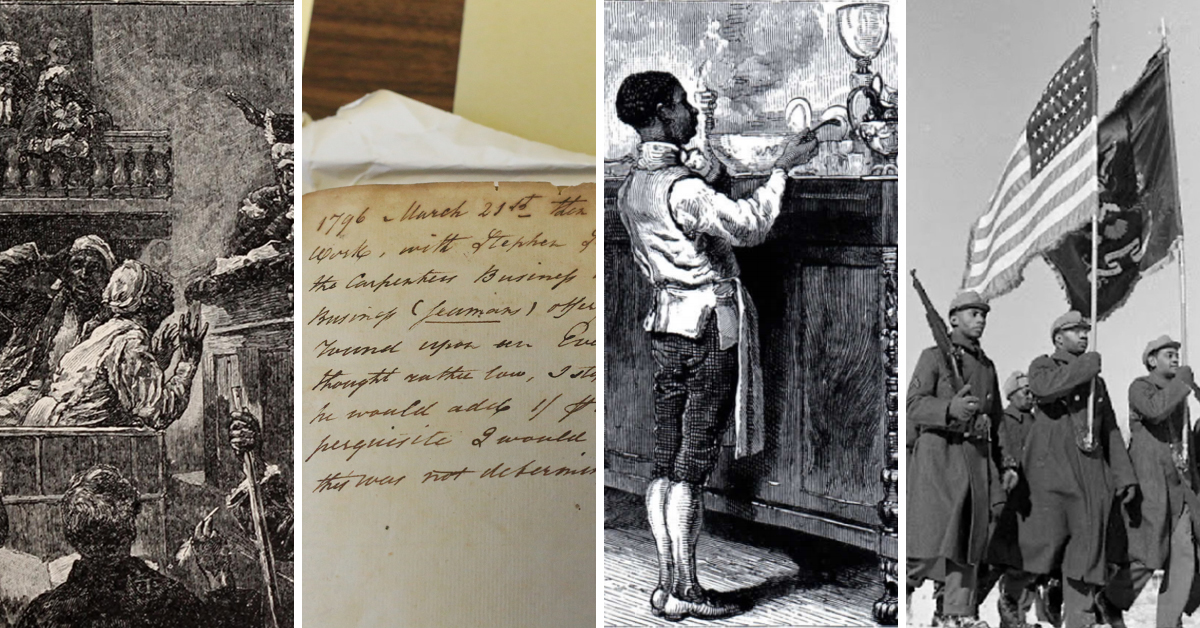 1796 - March 21st then
Work, with Stephen
the Carpenters Business
Business (Seaman) offe
round upon an Eve
thought rather low, I st
he would add 1/ P
perquisite I would
this was not determin